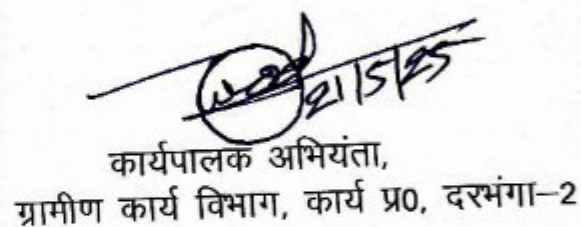 21/5/25
कार्यपालक अभियंता,
ग्रामीण कार्य विभाग, कार्य प्र0, दरभंगा–2